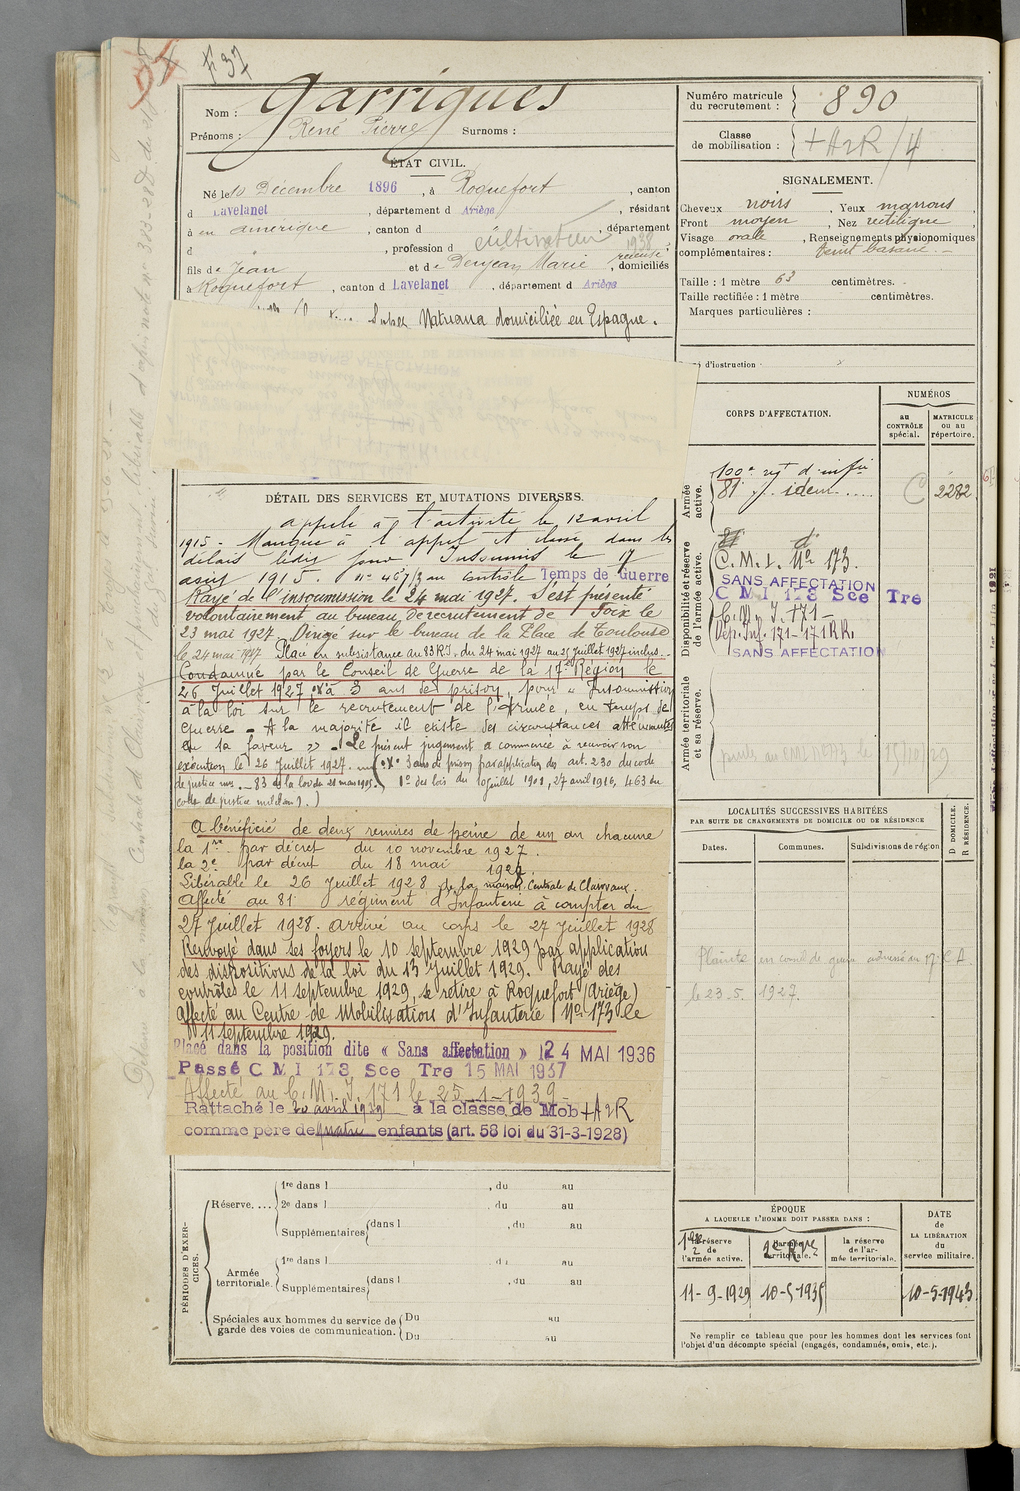 F 37
Nom : Garrigues
Prénoms : René Pierre Surnoms :
Numéro matricule
du recrutement : 890
Classe
de mobilisation : + A2R/4
ÉTAT CIVIL.
Né le 10 Décembre 1896 , à Roquefort , canton
d Lavelanet , département d Ariège , résidant
à en amérique , canton d , département
d , profession d cultivateur 1938
recensé
fils de Jean et de Denjean Marie , domiciliés
à Roquefort , canton d Lavelanet , département d Ariège
domiciliée en Espagne.
SIGNALEMENT.
Cheveux noirs , Yeux marrons ,
Front moyen , Nez rectiligne ,
Visage ovale , Renseignements physionomiques
complémentaires : teint basané
Taille : 1 mètre 63 centimètres.
Taille rectifiée : 1 mètre centimètres.
Marques particulières :
d'instruction
CORPS D'AFFECTATION.
NUMÉROS
au
CONTRÔLE
spécial.
MATRICULE
ou au
répertoire.
Armée
active.
100e regt d'infie
81 idem
2282
Disponibilité et réserve
de l'armée active.
C. M. I. No 173.
SANS AFFECTATION
C M I 173 Sce Tre
C. M. I. 171
Dép. Inf. 171 - 171 RR.
SANS AFFECTATION
Armée territoriale
et sa réserve.
DÉTAIL DES SERVICES ET MUTATIONS DIVERSES.
appelé à l'activité le 12 avril
1915. Manque à l'appel et classé dans les
délais ledit jour Insoumis le 17
août 1915. no 457/3 au contrôle Temps de Guerre
Rayé de l'insoumission le 24 mai 1927. S'est présenté
volontairement au bureau de recrutement de Foix le
23 mai 1927. Dirigé sur le bureau de la Place de Toulouse
le 24 mai 1927. Placé en subsistance au 83 R.I. du 24 mai 1927 au 25 juillet 1927 inclus.
Condamné par le Conseil de Guerre de la 17e Région le
26 Juillet 1927, à 3 ans de prison, pour « Insoumission
à la loi sur le recrutement de l'Armée, en temps de
guerre - A la majorité il existe des circonstances atténuantes
en sa faveur ». Le présent jugement a commencé à recevoir son
exécution le 26 Juillet 1927. 3 ans de prison par application des art. 230 du code
de justice mre - 83 de la loi de 21 mars 1905. 1e des lois du 19 juillet 1901, 27 avril 1916, 463 du
code de justice militaire.)
A bénéficié de deux remises de peine de un an chacune
la 1re par décret du 10 novembre 1927.
la 2e par décret du 18 mai 1928.
Libérable le 26 Juillet 1928 de la maison Centrale de Clairvaux.
Affecté au 81 régiment d'Infanterie à compter du
27 Juillet 1928. arrivé au corps le 27 Juillet 1928
Renvoyé dans ses foyers le 10 septembre 1929 par application
des dispositions de la loi du 13 Juillet 1929. Rayé des
contrôles le 11 septembre 1929, se retire à Roquefort (Ariège)
Affecté au Centre de Mobilisation d'Infanterie No 173 le
11 septembre 1929.
Placé dans la position dite « Sans affectation » le 24 MAI 1936
Passé C M I 173 Sce Tre 15 MAI 1937
Affecté au C. M. I. 171 le 25-1-1939
Rattaché le 20 avril 1939 à la classe de Mob + A2R
comme père de quatre enfants (art. 58 loi du 31-3-1928)
LOCALITÉS SUCCESSIVES HABITÉES
PAR SUITE DE CHANGEMENTS DE DOMICILE OU DE RÉSIDENCE
D DOMICILE.
R RÉSIDENCE.
Dates. Communes. Subdivisions de région
Plainte en conseil de guerre adressée au 17e C.A.
le 23.5.1927.
PÉRIODES D'EXERCICES.
Réserve.... 1re dans l , du au
2e dans l , du au
Supplémentaires dans l , du au
Armée
territoriale. 1re dans l , du au
Supplémentaires dans l , du au
Spéciales aux hommes du service de
garde des voies de communication. Du au
Du au
ÉPOQUE
A LAQUELLE L'HOMME DOIT PASSER DANS :
DATE
de
LA LIBÉRATION
du
service militaire.
réserve
de
l'armée active.
2e Rve
la réserve
de l'ar-
mée territoriale.
11-9-1929 10-5-1935 10-5-1943
Ne remplir ce tableau que pour les hommes dont les services font
l'objet d'un décompte spécial (engagés, condamnés, omis, etc.).